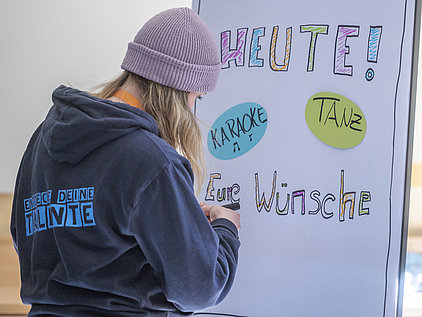 HEUTE!
KARAOKE
TANZ
Eure Wünsche
ENTDECKE DEINE
TALENTE